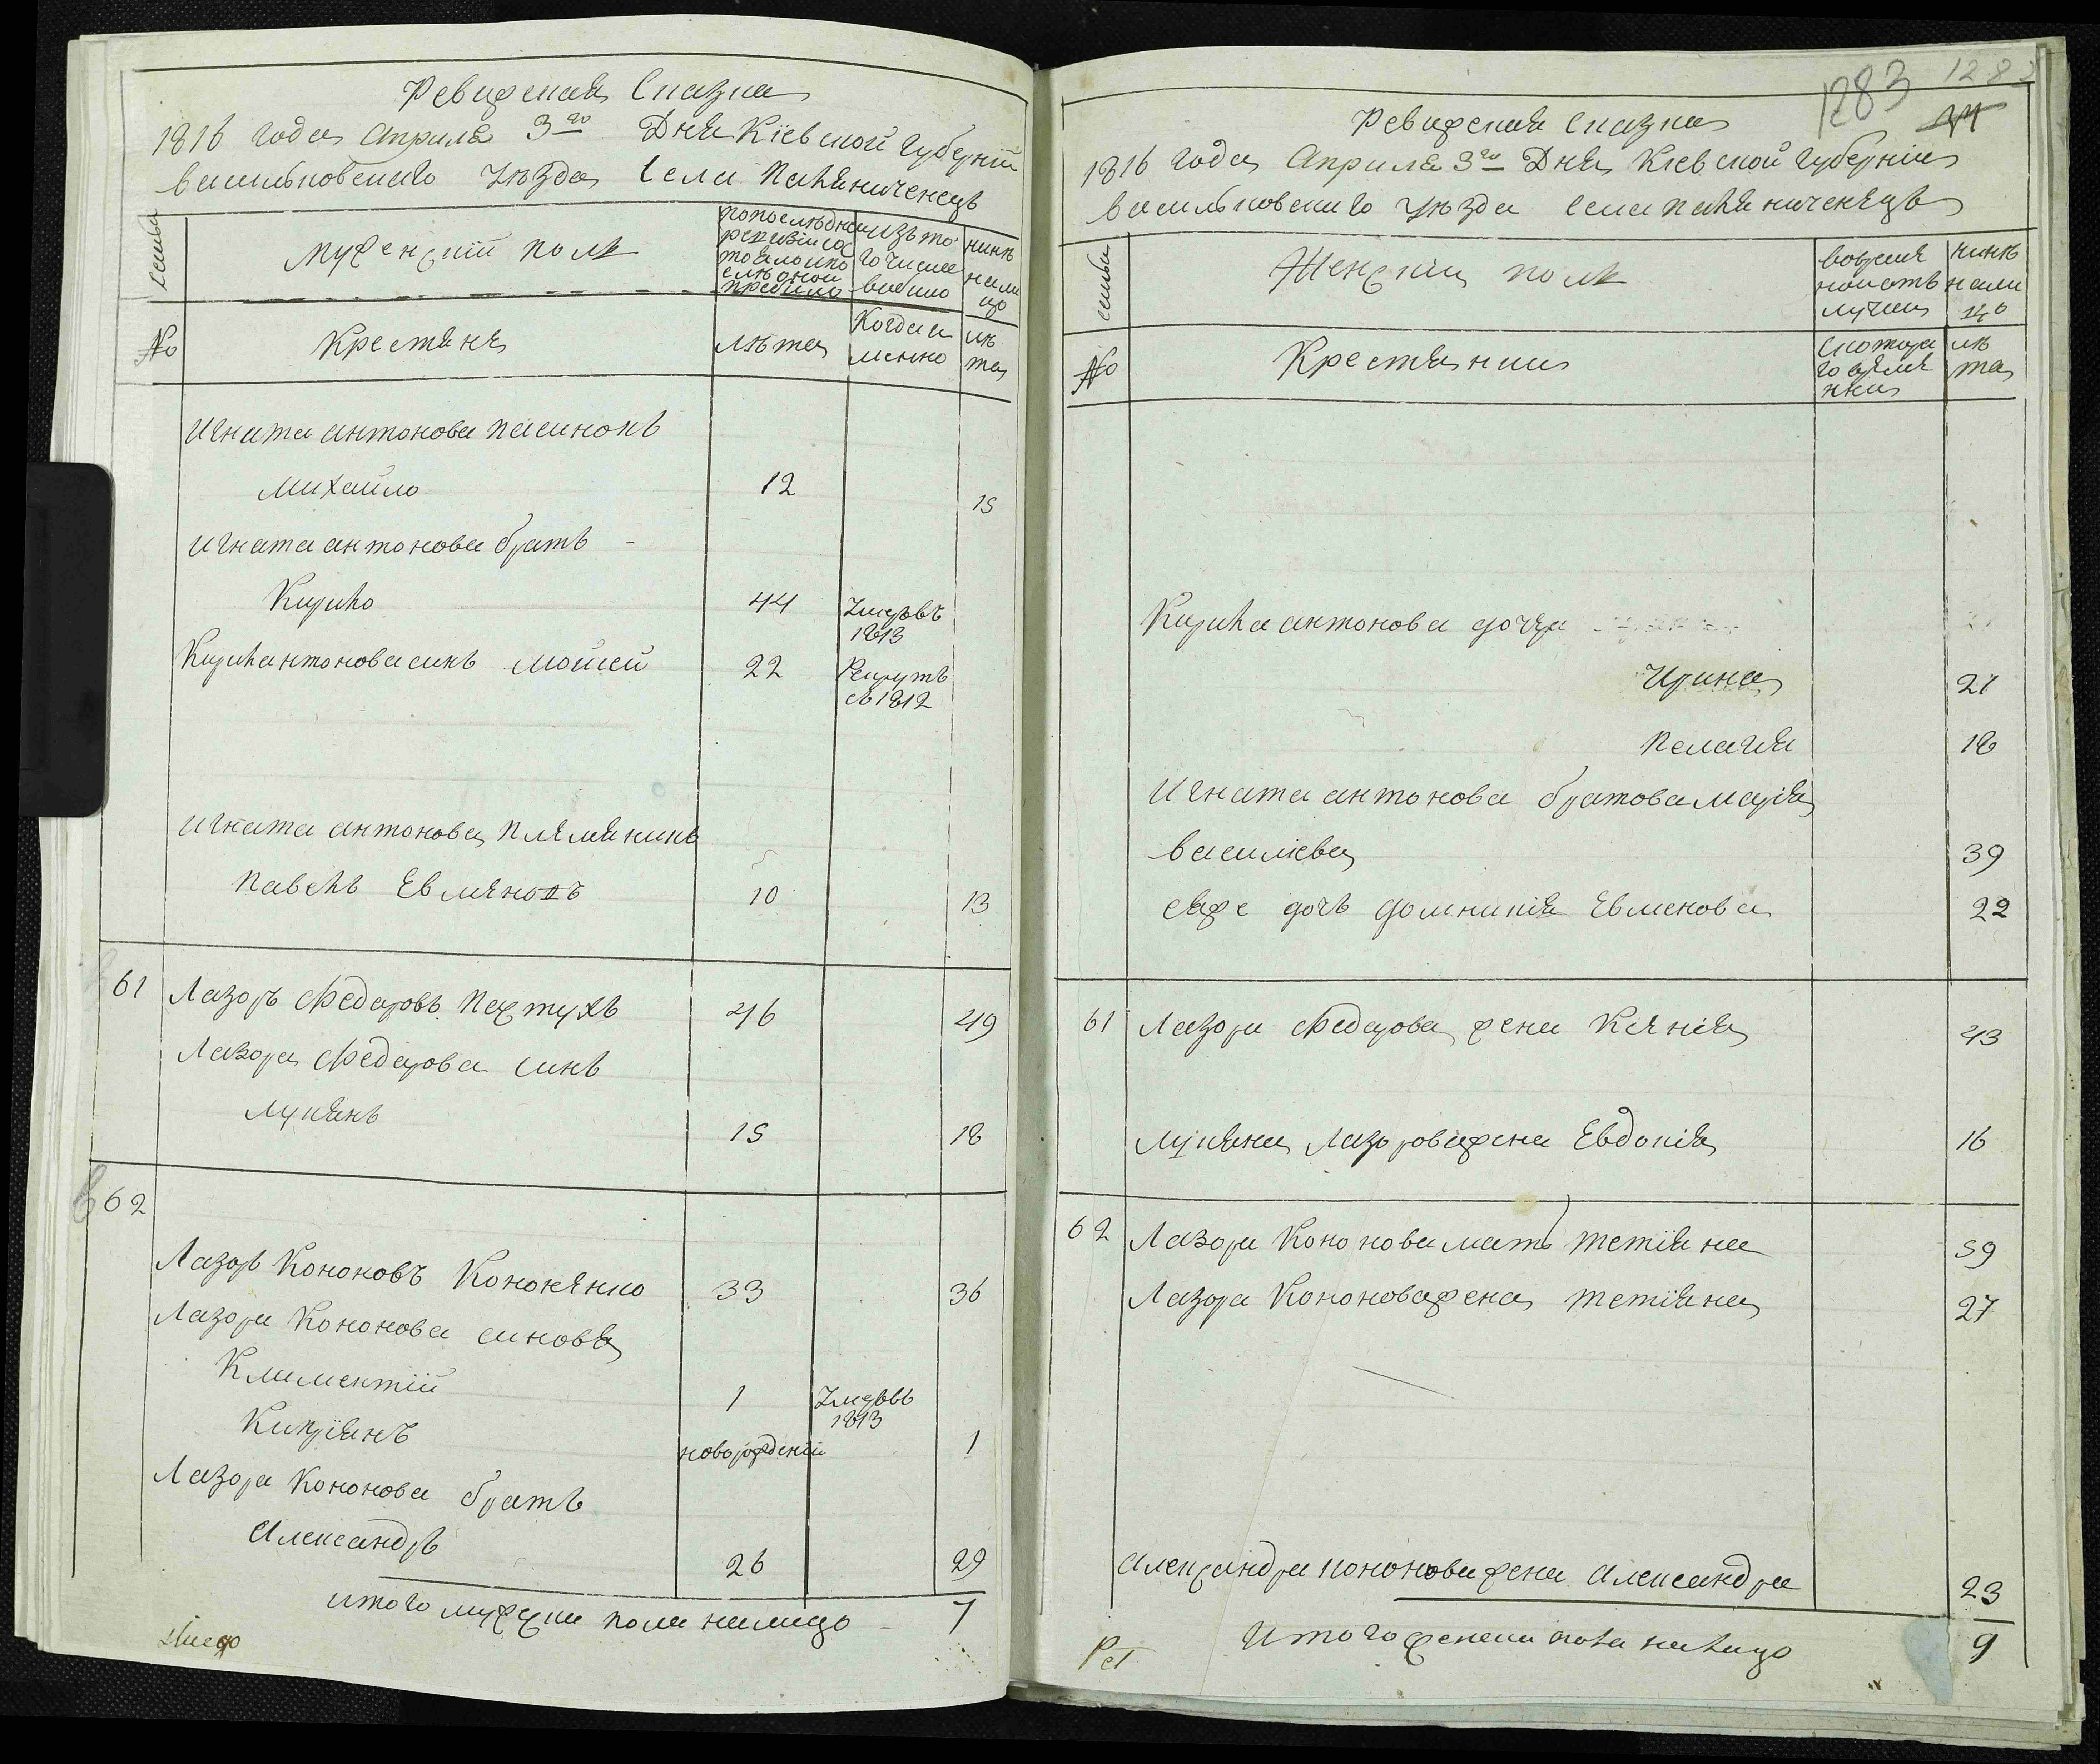 Ревизская Сказка
1816 года Априля 3го Дня Кіевской губерніи
васильковскаго уѣзда Села Паляниченецъ
семьи
мужескій полъ
попослѣдней ревизіи состояло ипослѣ оной прибыло
изъ того числа выбыло
нинѣ налицо
№
Крестяне
лѣта
Когда именно
лѣта
Игната антонова пасинокъ
Михайло 12 15
Игната антонова братъ
Кирило 44 Умеръ въ 1813
Кирила антонова синъ Мойсей 22 Рекрутъ съ 1812
Игната антонова племяникъ
Павелъ Евменовъ 10 13
61 Лазоръ Федоровъ Пастухъ 46 49
Лазора Федорова синъ
Лукянъ 15 18
62
Лазоръ Кононовъ Кононенко 33 36
Лазора Кононова синовя
Климентій 1 Умеръ въ 1813
Кипріянъ новорожденій 1
Лазора Кононова братъ
Александръ 26 29
итого мужеска пола налицо 7
1283 1283
Ревизская Сказка
1816 года Априля 3го Дня Кіевской губерніи
васильковскаго уѣзда села паляниченецъ
семьи
Женскій полъ
вовременной отлучки
нинѣ налицо
№
Крестянки
скоторого времени
лѣта
Кирила антонова дочери
Ирина 21
Пелагія 18
Игната антонова братова Марія
василіева 39
еяже дочь Домникія Евменова 22
61 Лазора Федорова жена Ксенія 43
Лукяна Лазорова жена Евдокія 16
62 Лазора Кононова мать Тетіяна 59
Лазора Кононова жена Тетіяна 27
Александра кононова жена Александра 23
Итого женска пола налицо 9